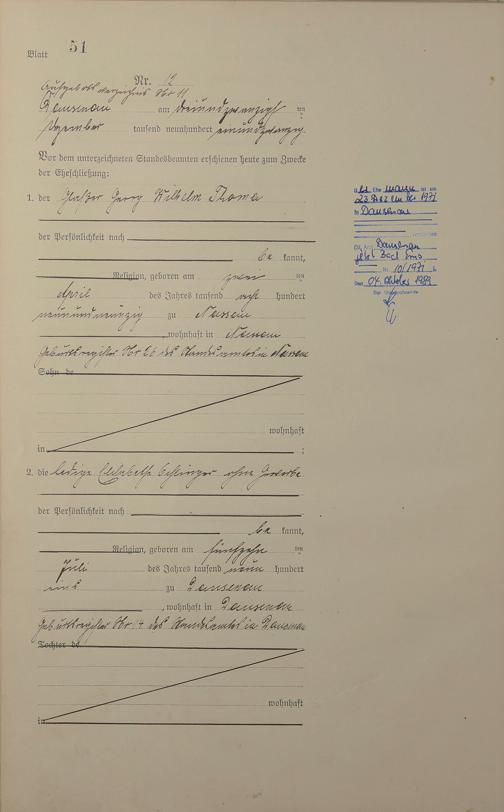 Blatt 51
Nr. 12
Aufgebotsverzeichnis Nr 11
Dausenau am dreiundzwanzigsten
Dezember tausend neunhundert einundzwanzig
Vor dem unterzeichneten Standesbeamten erschienen heute zum Zwecke
der Eheschließung:
1. der Georg Wilhelm Thoma
der Persönlichkeit nach
be kannt,
Religion, geboren am zwei ten
April des Jahres tausend acht hundert
neunundneunzig zu Nassau
, wohnhaft in Nassau
Geburtsregister Nr 26 des Standesamtes in Nassau
Sohn de
wohnhaft
in ;
2. die ledige Elisabethe ohne Gewerbe
der Persönlichkeit nach
be kannt,
Religion, geboren am fünfzehn ten
Juli des Jahres tausend neun hundert
eins zu Dausenau
, wohnhaft in Dausenau
Geburtsregister Nr 14 des Standesamtes in Dausenau
Tochter de
wohnhaft
in
Ehe
23. 1971
in Dausenau
Dausenau
jetzt Bad Ems
Nr. 10/1971
04. Oktober 1989